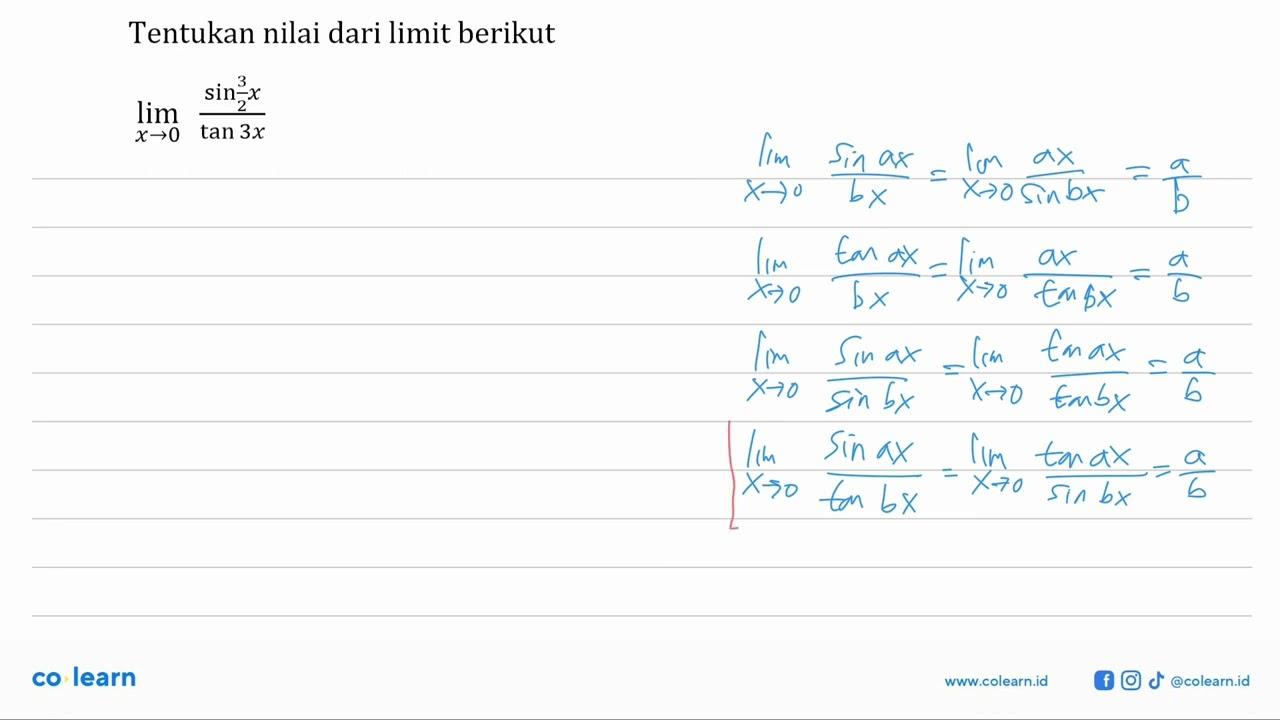 Tentukan nilai dari limit berikut
lim x→0 sin 3/2 x / tan 3x
lim x→0 sin ax / bx = lim x→0 ax / sin bx = a/b
lim x→0 tan ax / bx = lim x→0 ax / tan bx = a/b
lim x→0 sin ax / sin bx = lim x→0 tan ax / tan bx = a/b
lim x→0 sin ax / tan bx = lim x→0 tan ax / sin bx = a/b
co learn
www.colearn.id
@colearn.id